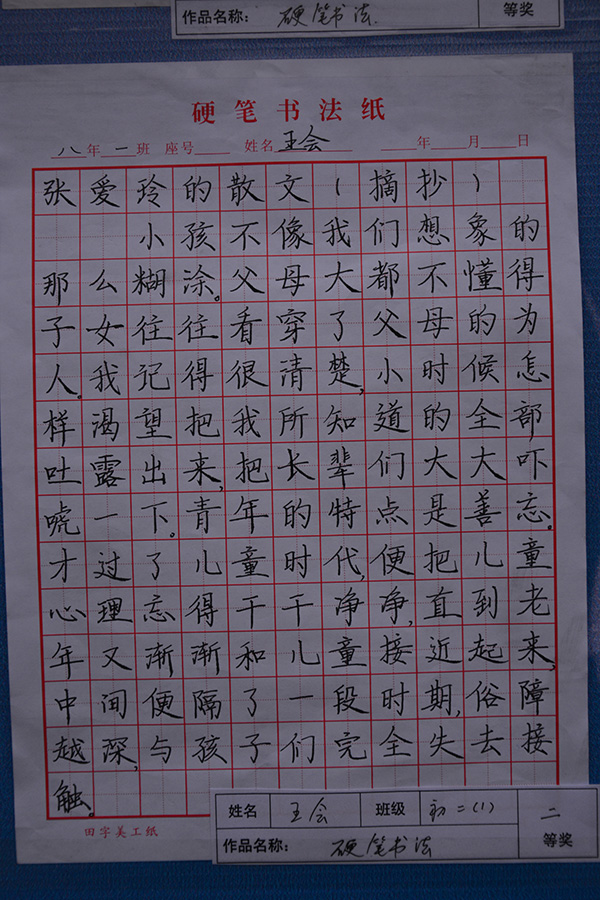 作品名称： 硬笔书法 等奖
硬笔书法纸
八年一班 座号 姓名 王会 年 月 日
张爱玲的散文（摘抄）
小孩不像我们想象的
那么糊涂。父母大都不懂得
子女往往看穿了父母的为
人。我记得很清楚，小时候怎
样渴望把我所知道的全部
吐露出来，把长辈们大大吓
唬一下。青年的特点是善忘。
才过了儿童时代，便把儿童
心理忘得干干净净，直到老
年又渐渐和儿童接近起来，
中间便隔了一段时期，俗障
越深，与孩子们完全失去接
触。
田字美工纸
姓名 王会 班级 初二（1） 二等奖
作品名称： 硬笔书法